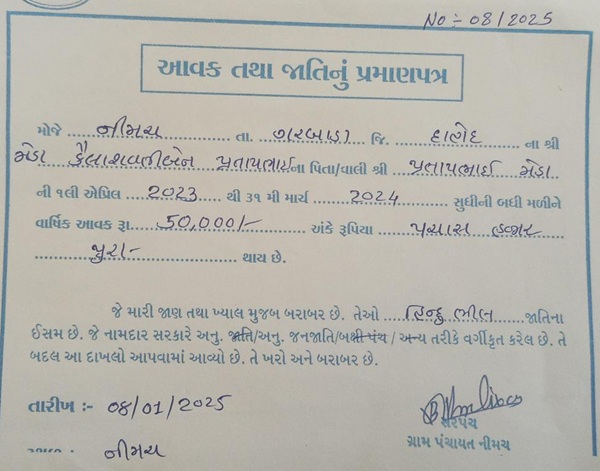 No :- 08/2025
આવક તથા જાતિનું પ્રમાણપત્ર
મોજે નીમચ તા. ગરબાડા જિ. દાહોદ ના શ્રી
મેડા કૈલાશવતીબેન પ્રતાપભાઈના પિતા/વાલી શ્રી પ્રતાપભાઈ મેડા
ની ૧લી એપ્રિલ 2023 થી ૩૧ મી માર્ચ 2024 સુધીની બધી મળીને
વાર્ષિક આવક રૂા. 50,000/- અંકે રૂપિયા પચાસ હજાર
પુરા- થાય છે.
જે મારી જાણ તથા ખ્યાલ મુજબ બરાબર છે. તેઓ હિન્દુ ભીલ જાતિના
ઈસમ છે. જે નામદાર સરકારે અનુ. જાતિ/અનુ. જનજાતિ/બક્ષીપંચ / અન્ય તરીકે વર્ગીકૃત કરેલ છે. તે
બદલ આ દાખલો આપવામાં આવ્યો છે. તે ખરો અને બરાબર છે.
તારીખ :- 08/01/2025
સરપંચ
ગ્રામ પંચાયત નીમચ
નીમચ